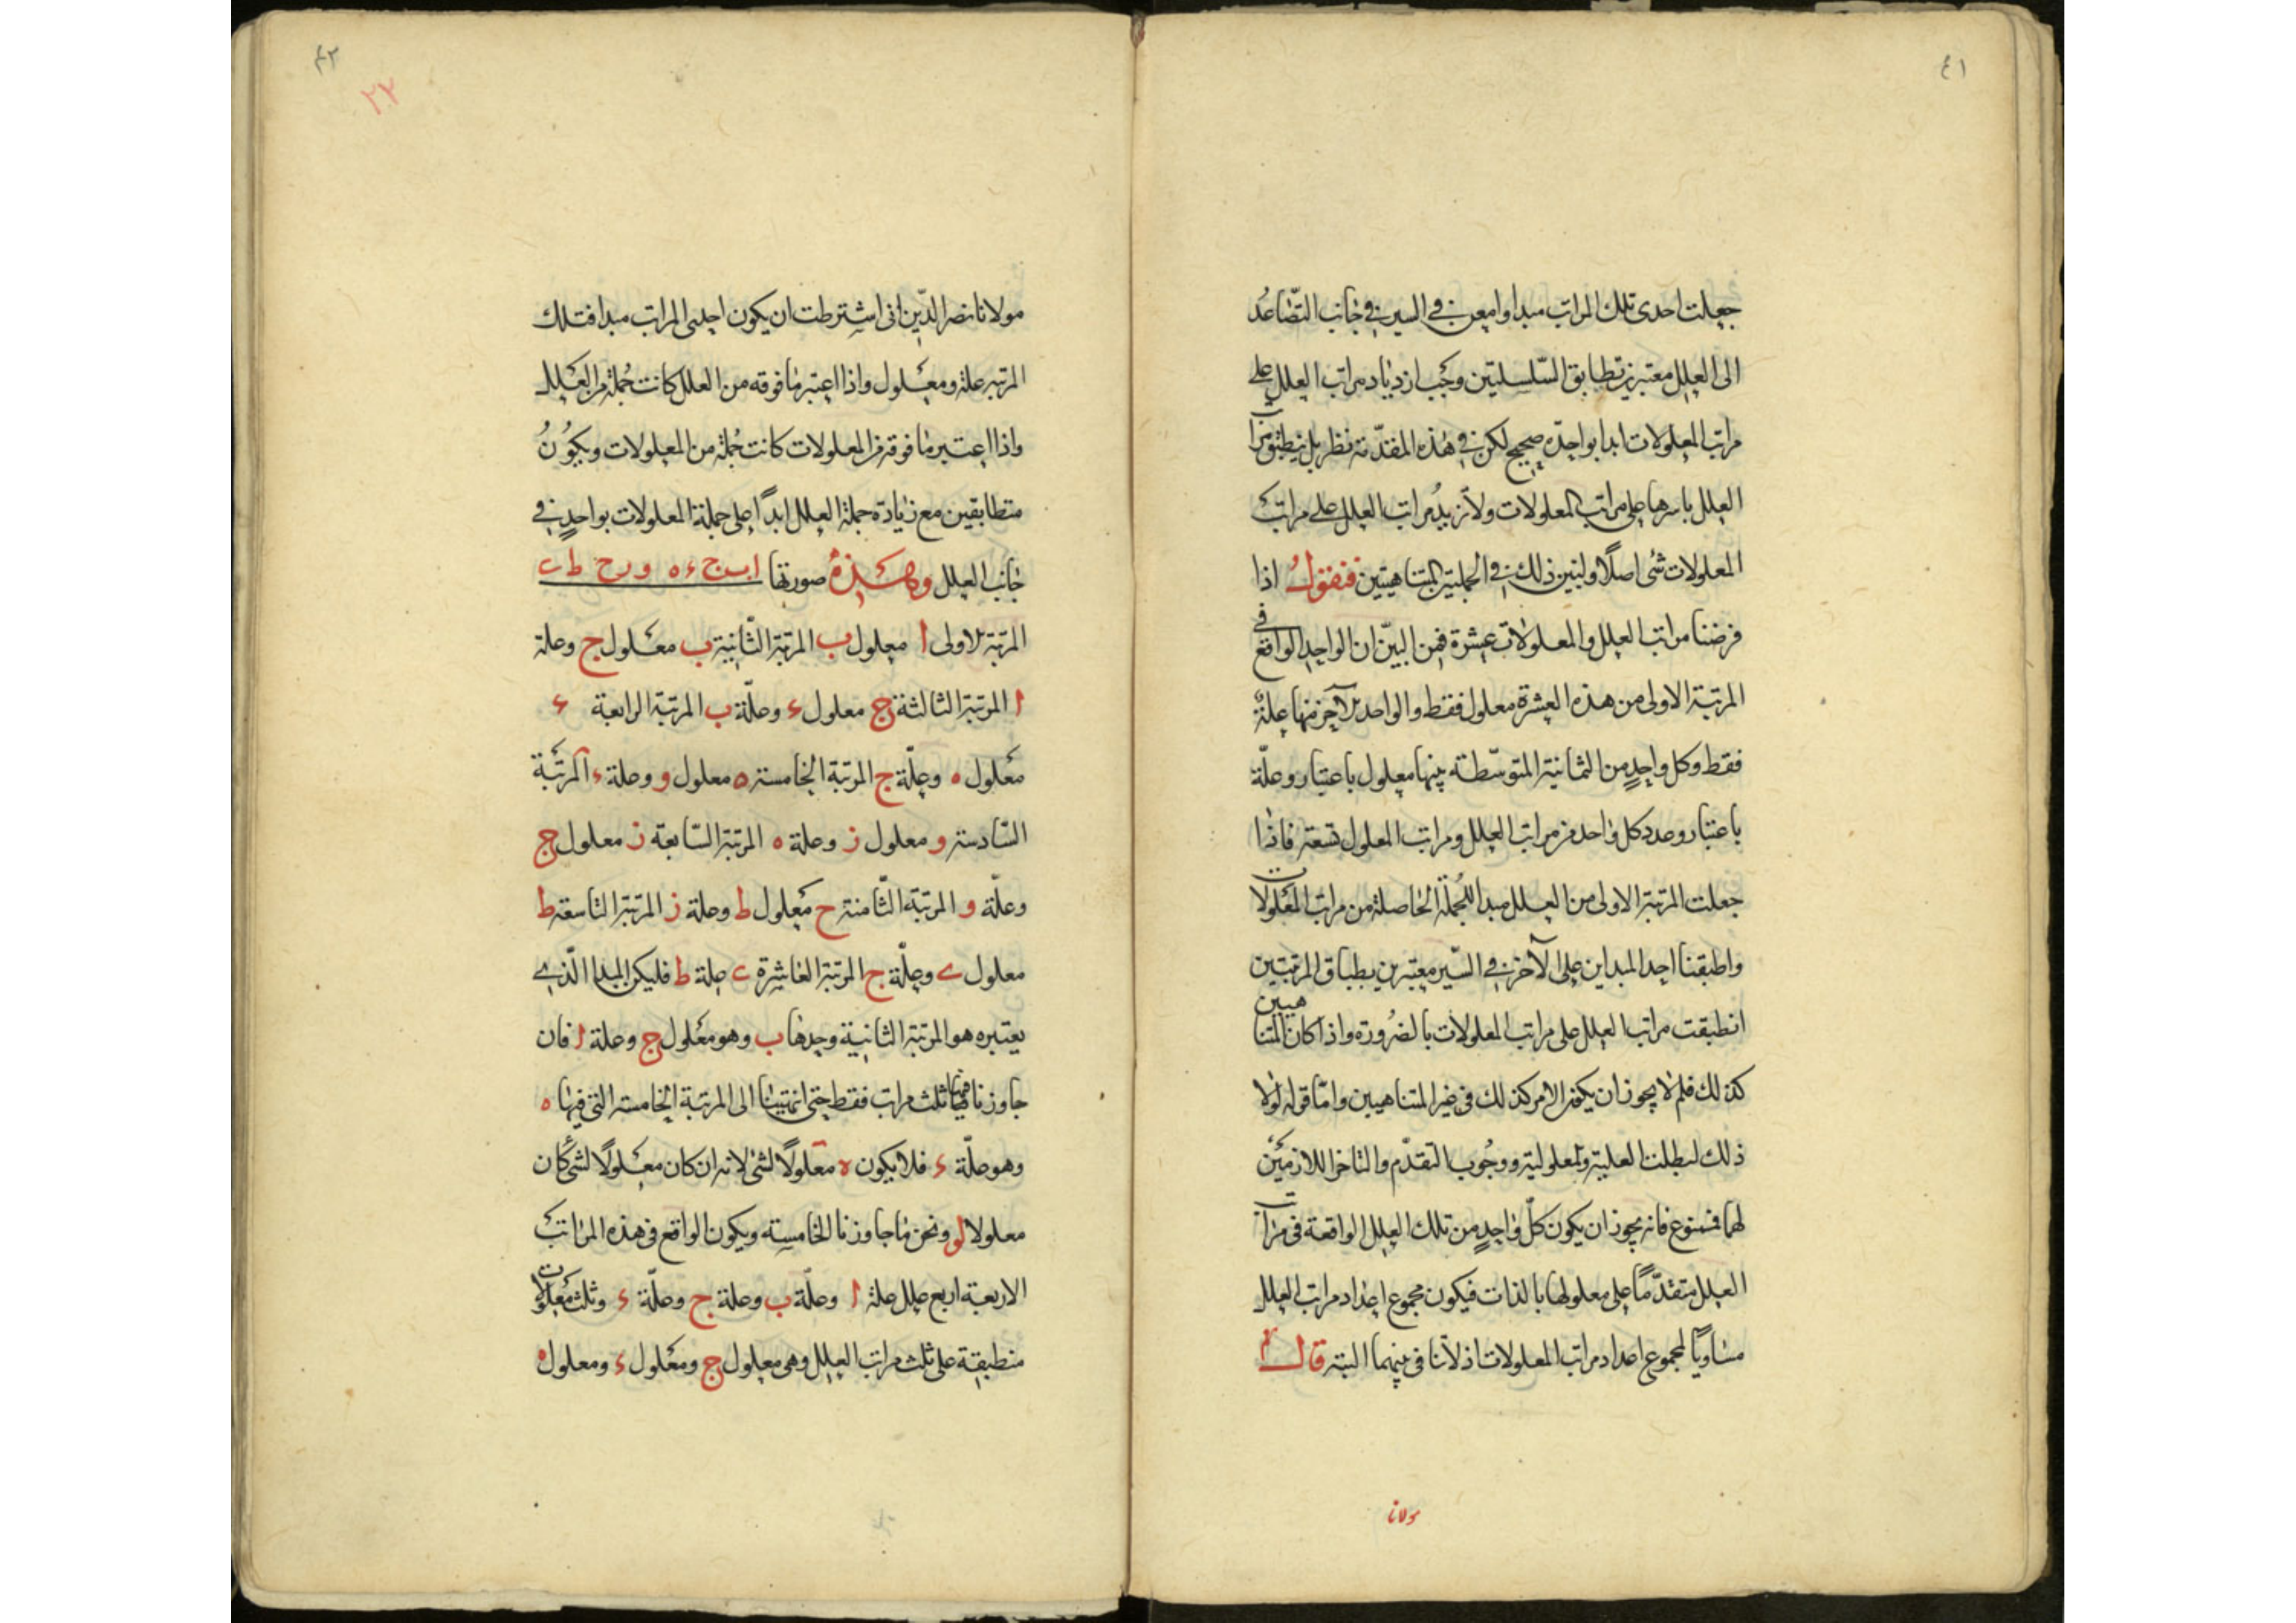 ٤١
جعلت احدى تلك المراتب مبدا وامعن في السير في جانب التصاعد
الى العلل معتبرين تطابق السلسلتين وجب ازدياد مراتب العلل على
مراتب المعلولات ابدا بواحدة صحيح لكن في هذه المقدمة نظر بل ينطبق مراتب
العلل باسرها على مراتب المعلولات ولا تزيد مراتب العلل على مراتب
المعلولات شئ اصلا ولنبين ذلك في الجملتين المتناهيتين فنقول اذا
فرضنا مراتب العلل والمعلولات عشرة فمن البين ان الواحد الواقع في
المرتبة الاولى من هذه العشرة معلول فقط والواحد الآخر منها علة
فقط وكل واحد من الثمانية المتوسطة بينها معلول باعتبار وعلة
باعتبار وعدد كل واحد من مراتب العلل ومراتب المعلول تسعة فاذا
جعلت المرتبة الاولى من العلل مبدا للجملة الحاصلة من مراتب المعلولات
واطبقنا احد المبداين على الآخر في السير معتبرين بطباق المرتبتين
انطبقت مراتب العلل على مراتب المعلولات بالضرورة واذا كان المتناهيين
كذلك فلم لا يجوز ان يكون الامر كذلك في غير المتناهيين واما قوله لولا
ذلك لبطلت العلية والمعلولية ووجوب التقدم والتاخر اللازمين
لهما فممنوع فانه يجوز ان يكون كل واحد من تلك العلل الواقعة في مراتب
العلل متقدما على معلولها بالذات فيكون مجموع اعداد مراتب العلل
مساويا لمجموع اعداد مراتب المعلولات اذ لا تنافى بينهما البتة قال
مولانا
٤٢
٢٢
مولانا نصر الدين انى اشترطت ان يكون احدى المراتب مبدا فتلك
المرتبة علة ومعلول واذا اعتبر ما فوقه من العلل كانت جملة من العلل
واذا اعتبر ما فوقه من المعلولات كانت جملة من المعلولات ويكون
متطابقين مع زيادة جملة العلل ابدا على جملة المعلولات بواحد في
جانب العلل وهذه صورتها ا ب ج ء ه و ز ح ط ى
المرتبة الاولى ا معلول ب المرتبة الثانية ب معلول ج وعلة
ا المرتبة الثالثة ج معلول ء وعلة ب المرتبة الرابعة ء
معلول ه وعلة ج المرتبة الخامسة ه معلول و وعلة ء المرتبة
السادسة و معلول ز وعلة ه المرتبة السابعة ز معلول ح
وعلة و المرتبة الثامنة ح معلول ط وعلة ز المرتبة التاسعة ط
معلول ى وعلة ح المرتبة العاشرة ى علة ط فليكن المبدا الذى
يعتبره هو المرتبة الثانية وحدها ب وهو معلول ج وعلة ا فان
جاوزنا منها ثلث مراتب فقط حتى انتهينا الى المرتبة الخامسة التي فيها ه
وهو علة ء فلا يكون ه معلولا لشئ لانه ان كان معلولا لشئ كان
معلولا لو ونحن ما جاوزنا الخامسة ويكون الواقع في هذه المراتب
الاربعة اربع علل علة ا وعلة ب وعلة ج وعلة ء وثلث معلولات
منطبقة على ثلث مراتب العلل وهى معلول ج ومعلول ء ومعلول ه